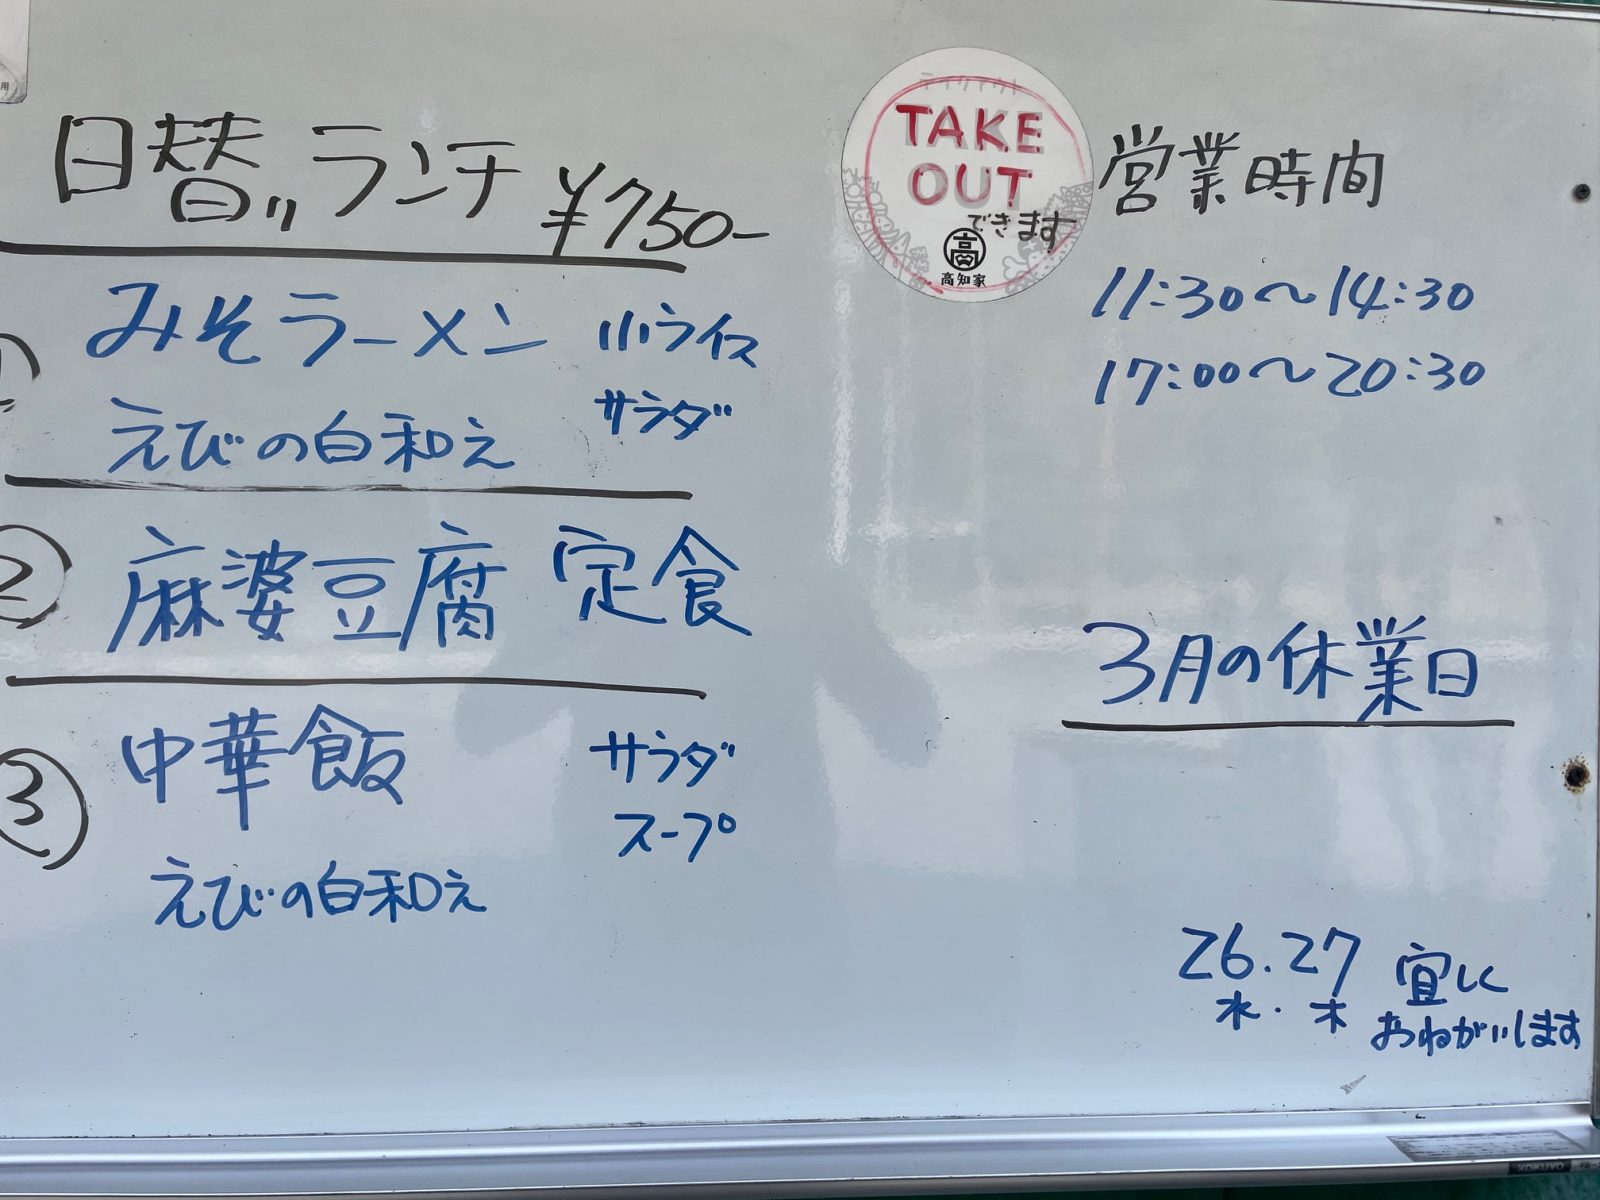 日替りランチ ¥750-
① みそラーメン 小ライス
えびの白和え サラダ
② 麻婆豆腐 定食
③ 中華飯 サラダ
スープ
えびの白和え
テイクアウト
TAKE
OUT
できます
高
高知家
営業時間
11:30〜14:30
17:00〜20:30
3月の休業日
26.27 宜しく
水・木 おねがいします
KOKUYO
用